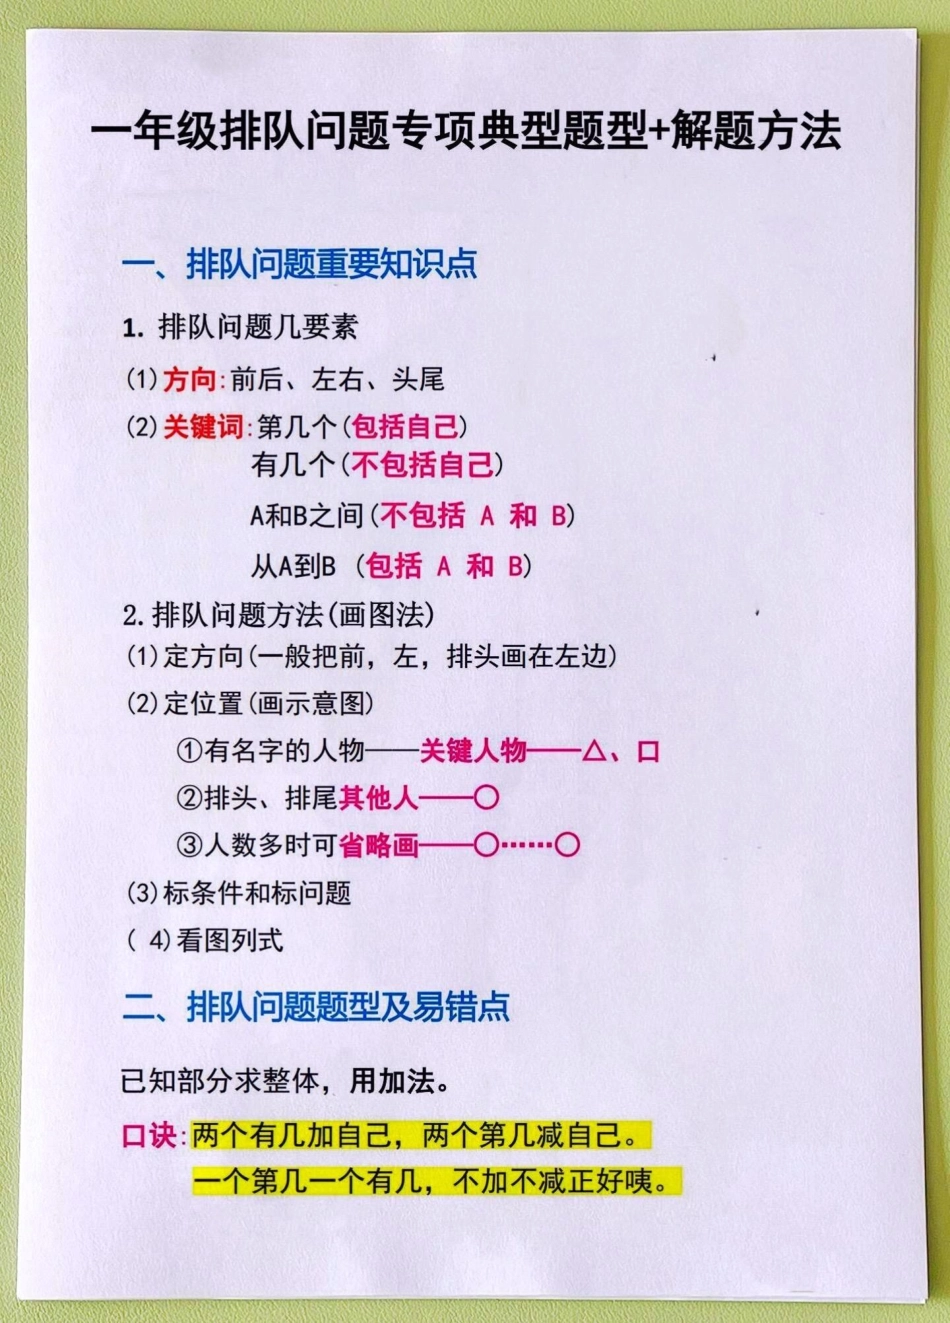 一年级排队问题专项典型题型+解题方法
一、排队问题重要知识点
1. 排队问题几要素
(1)方向:前后、左右、头尾
(2)关键词:第几个(包括自己)
有几个(不包括自己)
A和B之间(不包括 A 和 B)
从A到B (包括 A 和 B)
2.排队问题方法(画图法)
(1)定方向(一般把前，左，排头画在左边)
(2)定位置(画示意图)
①有名字的人物——关键人物——△、口
②排头、排尾其他人——〇
③人数多时可省略画——〇······〇
(3)标条件和标问题
( 4)看图列式
二、排队问题题型及易错点
已知部分求整体，用加法。
口诀:两个有几加自己，两个第几减自己。
一个第几一个有几，不加不减正好咦。